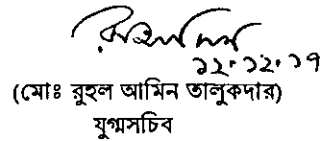 ১২.১২.১৭
(মোঃ রুহুল আমিন তালুকদার)
যুগ্মসচিব